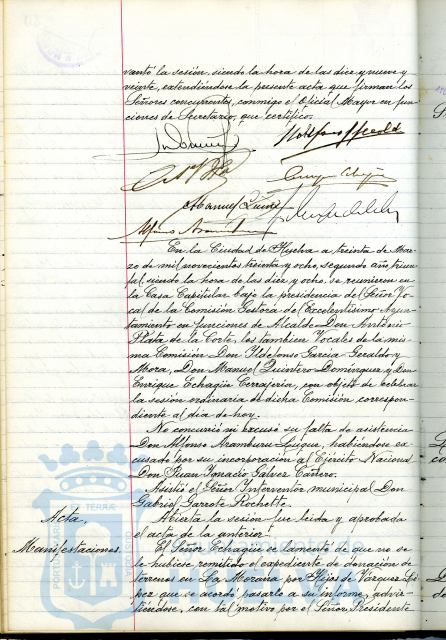 vantó la sesión, siendo la hora de las diez y nueve y
veinte, extendiéndose la presente acta que firman los
Señores concurrentes, conmigo el Oficial Mayor en fun-
ciones de Secretario, que certifico.
En la Ciudad de Huelva a treinta de Mar-
zo de mil novecientos treinta y ocho, segundo año triun-
fal, siendo la hora de las diez y ocho, se reunieron en
la Casa Capitular bajo la presidencia del Señor Vo-
cal de la Comisión Gestora del Excelentísimo Ayun-
tamiento en funciones de Alcalde Don Antonio
Plata de la Corte, los también Vocales de la mis-
ma Comisión Don Ildefonso García Geraldo y
Mora, Don Manuel Quintero Domínguez, y Don
Enrique Echagüe Cerrajería, con objeto de celebrar
la sesión ordinaria de dicha Comisión correspon-
diente al día de hoy.
No concurrió ni excusó su falta de asistencia
Don Alfonso Aramburu Luque, habiéndose ex-
cusado por su incorporación al Ejército Nacional
Don Juan Ignacio Gálvez Cañero.
Asistió el Señor Interventor municipal Don
Gabriel Garrote Rochette.
Acta. Abierta la sesión fue leída y aprobada
el acta de la anterior.
Manifestaciones. El Señor Echagüe se lamentó de que no se
le hubiese remitido el expediente de donación de
terrenos en La Morana por Hijos de Vázquez Ló-
pez que se acordó pasarle a su informe, advir-
tiéndose, con tal motivo por el Señor Presidente